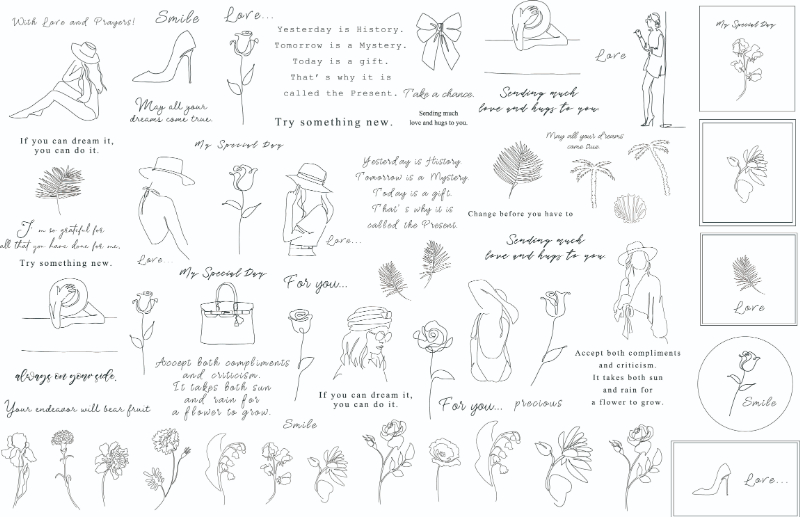 With Love and Prayers!
Smile
Love...
Yesterday is History.
Tomorrow is a Mystery.
Today is a gift.
That's why it is
called the Present.
Try something new.
Take a chance.
Sending much
love and hugs to you.
Sending much
love and hugs to you.
Love
My Special Day
May all your
dreams come true.
If you can dream it,
you can do it.
My Special Day
Yesterday is History
Tomorrow is a Mystery.
Today is a gift.
That's why it is
called the Present.
May all your dreams
come true.
Change before you have to
I'm so grateful for
all that you have done for me.
Try something new.
Love...
Love...
My Special Day
For you...
Sending much
love and hugs to you.
Love
always on your side.
Your endeavor will bear fruit
Accept both compliments
and criticism.
It takes both sun
and rain for
a flower to grow.
Smile
If you can dream it,
you can do it.
For you...
precious
Accept both compliments
and criticism.
It takes both sun
and rain for
a flower to grow.
Smile
Love...